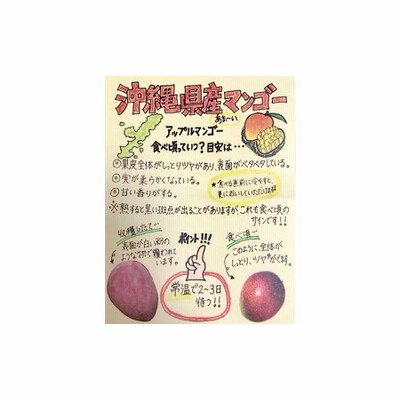 沖縄県産マンゴー
あま〜い
アップルマンゴー
食べ頃っていつ?目安は…
◎果皮全体がしっとりツヤがあり、表面がベタベタしている。
◎実が柔らかくなっている。
◎甘い香りがする。
★食べる直前に冷やすと、
更においしくいただけます!
※熟すると黒い斑点が出ることがありますが、これも食べ頃の
サインです!!
収穫したて…
表面が白い粉の
ような物で覆われて
います。
ポイント!!!
食べ頃…
このように、全体が
しっとり、ツヤがでます。
常温で2~3日
待つ!!